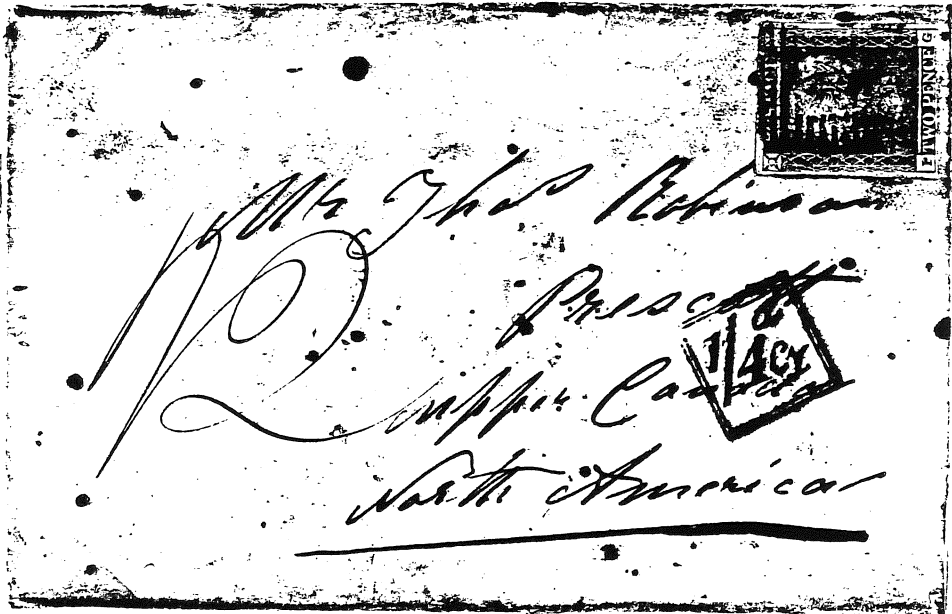 P TWO PENCE G
Mr Thos Robinson
Prescott
1/4 d Cy
upper Canada
North America